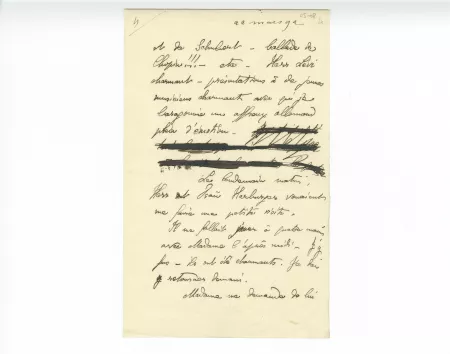 et de Schubert - ballade de
Chopin!!! - etc - Herr Lévi
charmant - présentations à de jeunes
musiciens charmants avec qui je
baragouine un affreux allemand
plein d'émotion.
Le lendemain matin:
Herr et Frau Herburger venaient
me faire une petite visite.
Il me fallait jouer à quatre mains
avec Madame l'après midi -
- Ils ont été charmants. Je
y retourner demain.
Madame me demande de lui